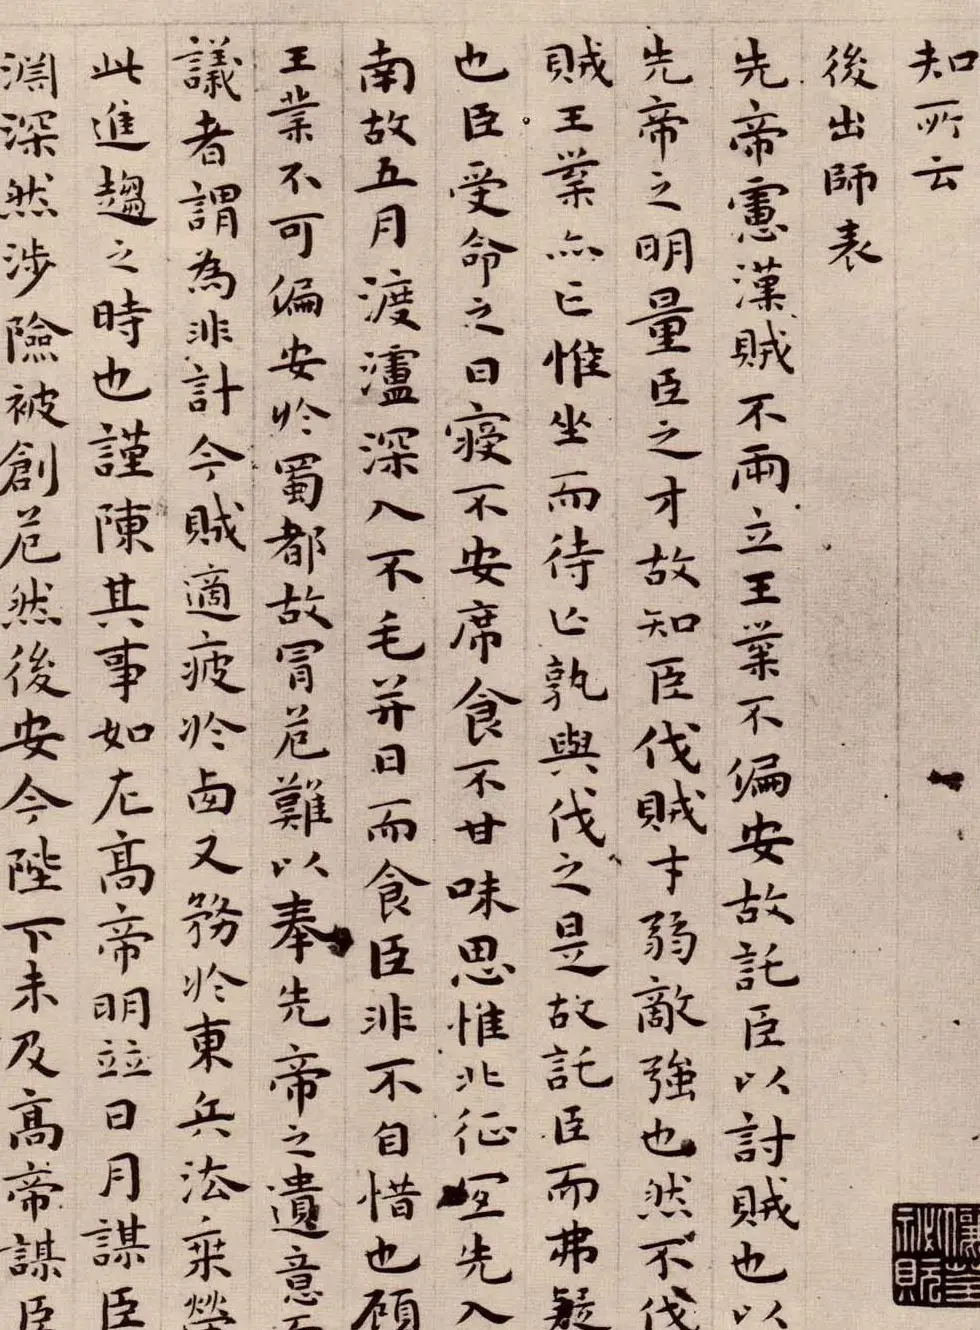 知所云
後出師表
先帝慮漢賊不兩立王業不偏安故託臣以討賊也以
先帝之明量臣之才故知臣伐賊才弱敵強也然不伐
賊王業亦亡惟坐而待亡孰與伐之是故託臣而弗疑
也臣受命之日寢不安席食不甘味思惟北征宜先入
南故五月渡瀘深入不毛并日而食臣非不自惜也顧
王業不可偏安於蜀都故冒危難以奉先帝之遺意而
議者謂為非計今賊適疲於西又務於東兵法乗勞
此進趨之時也謹陳其事如左高帝明並日月謀臣
淵深然涉險被創危然後安今陛下未及高帝謀臣